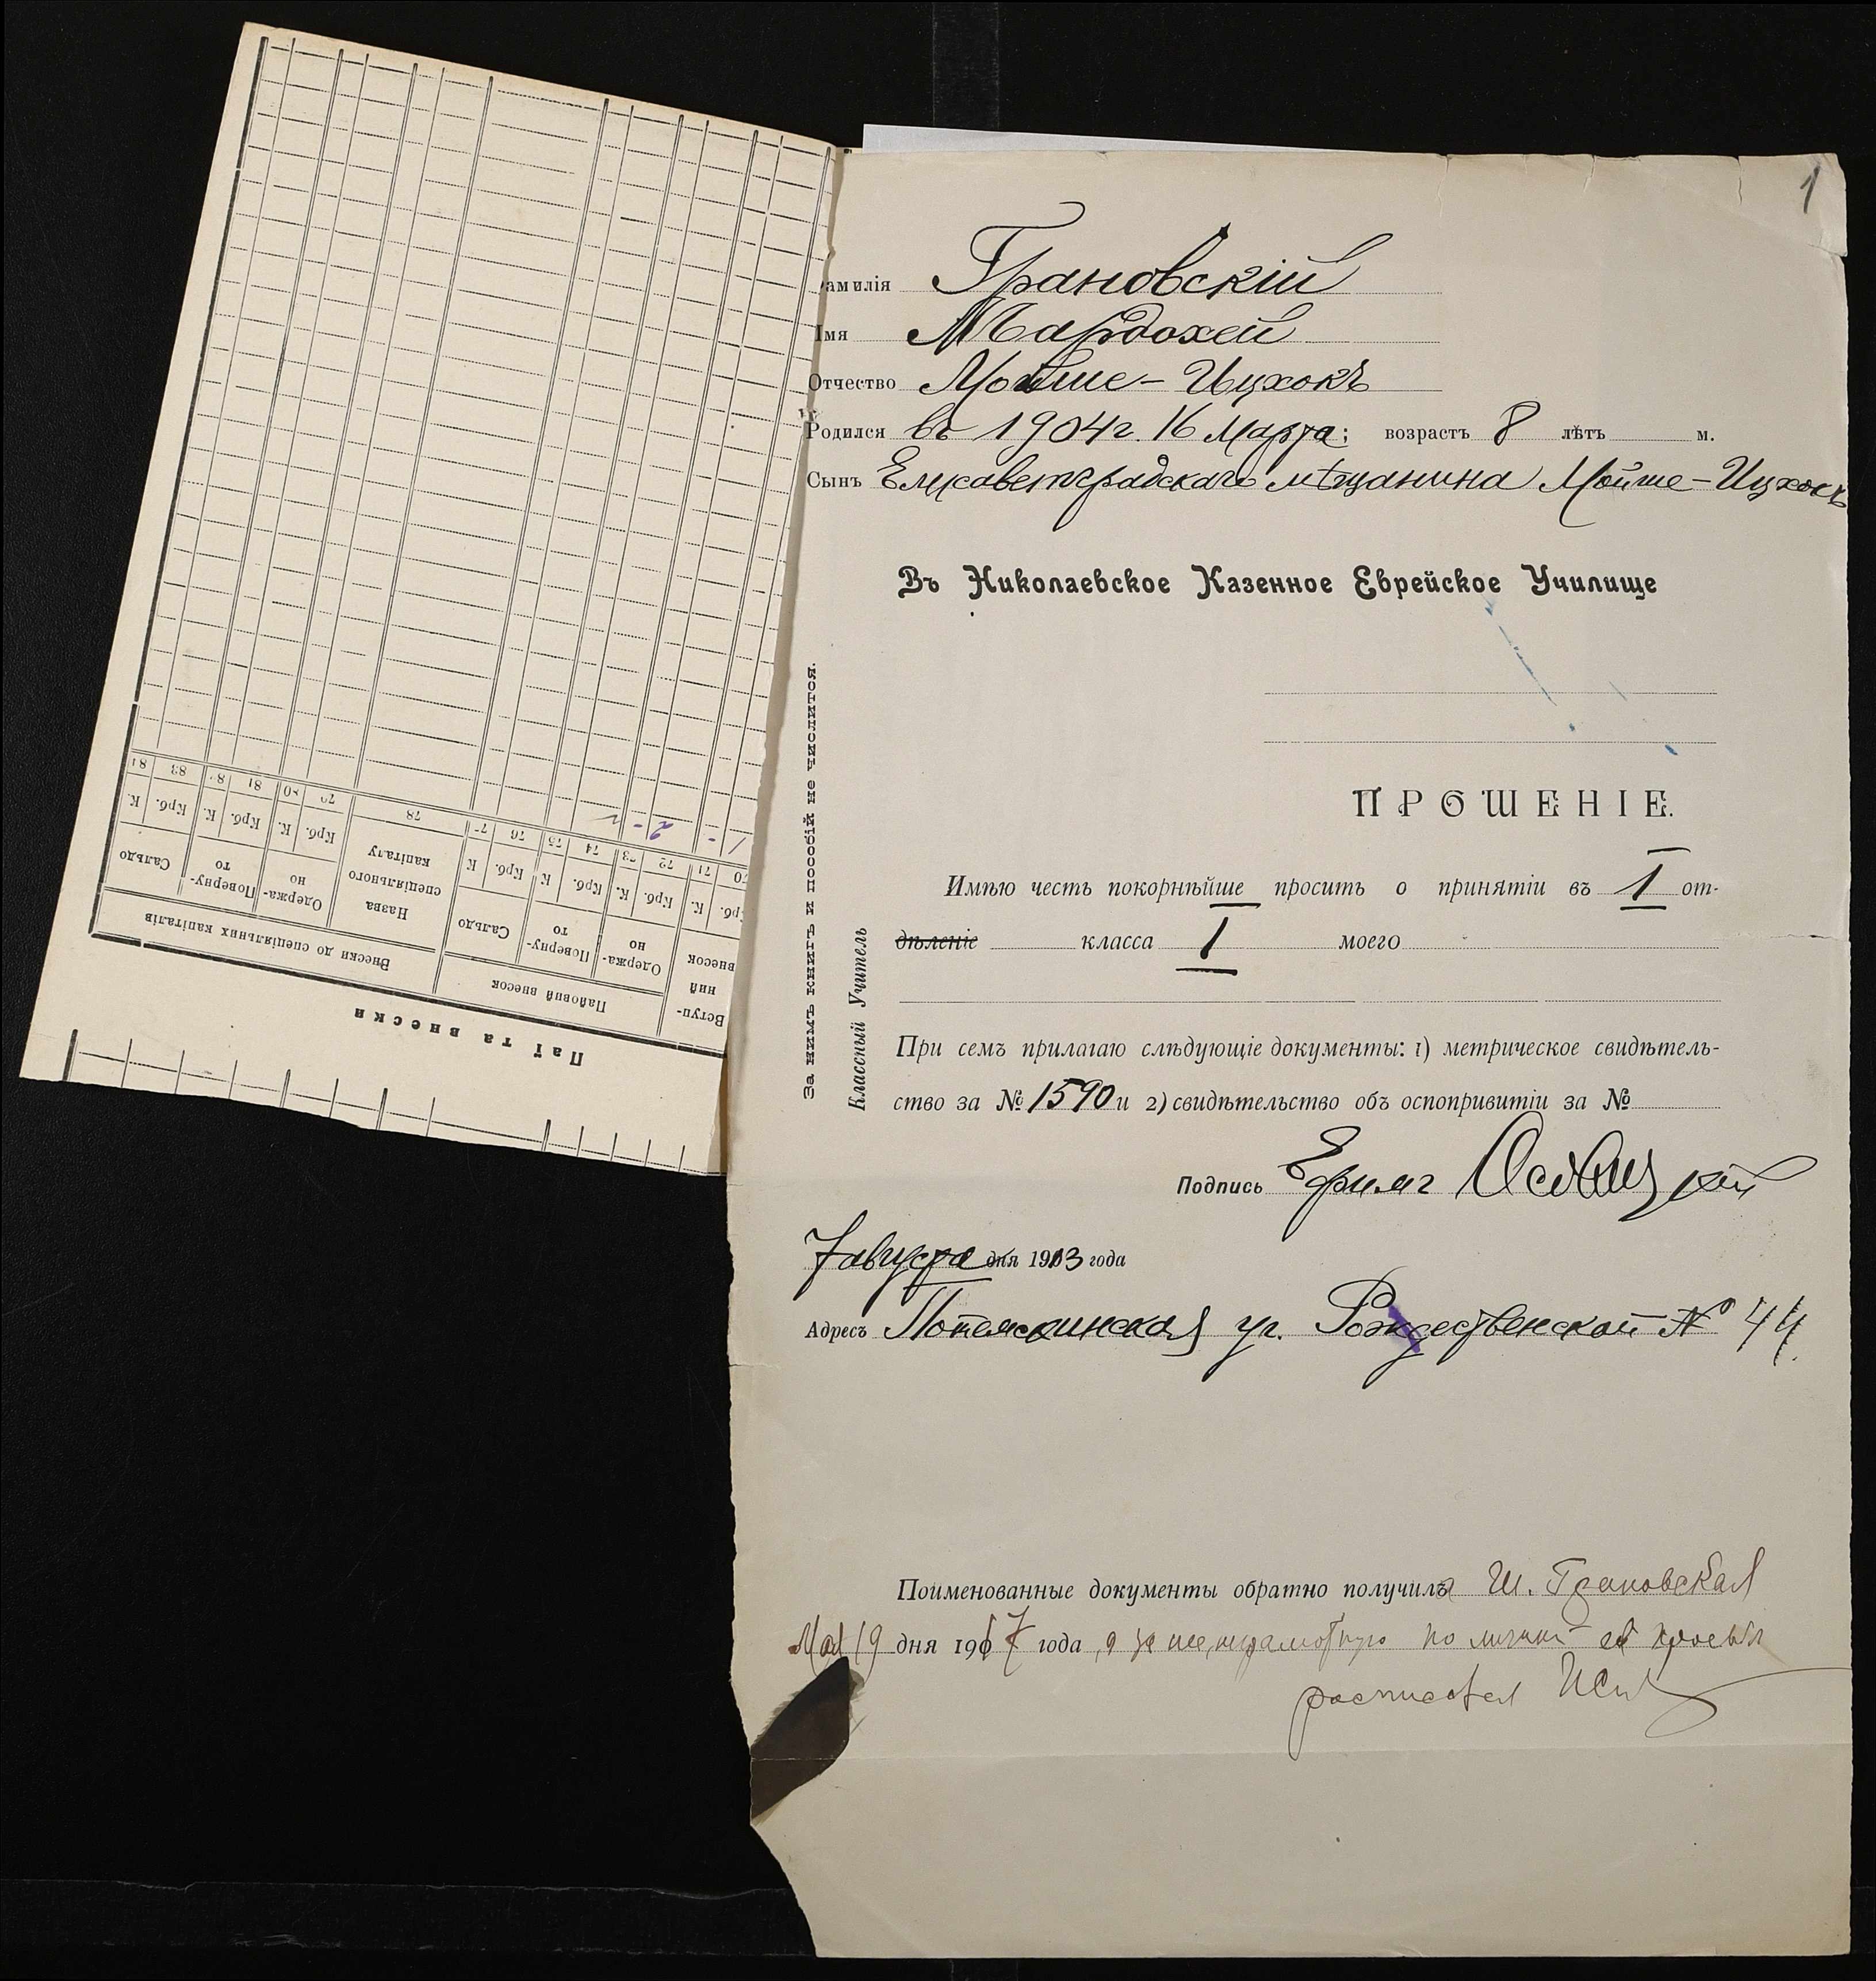 1
Фамилія Грановскій
Імя Мардохей
Отчество Мойше-Ицхокъ
Родился въ 1904 г. 16 Марта; возрастъ 8 лѣтъ м.
Сынъ Елисаветградскаго мѣщанина Мойше-Ицхокъ
Въ Николаевское Казенное Еврейское Училище
ПРОШЕНІЕ.
Имѣю честь покорнѣйше просить о принятіи въ 1 от-
дѣленіе класса 1 моего
При семъ прилагаю слѣдующіе документы: 1) метрическое свидѣтель-
ство за № 1590 и 2) свидѣтельство объ оспопривитіи за №
Подпись
7 августа дня 1913 года
Адресъ Потемкинская уг. Рождественской № 44.
Поименованные документы обратно получила Ш. Грановская
Мая 19 дня 1917 года, а за нее, неграмотную по личной ея просьбѣ
расписался
За нимъ книгъ и пособій не числится.
Классный Учитель
Паї та внески
Вступ-
ний
внесок
Пайовий внесок
Внески до спеціяльних капіталів
Одержа-
но
Поверну-
то
Сальдо
Назва
спеціяльного
капіталу
Одержа-
но
Поверну-
то
Сальдо
Крб. К. Крб. К. Крб. К. Крб. К Крб. К. Крб. К. Крб. К.
70 71 72 73 74 75 76 77 78 79 80 81 82 83 84
1 - 2 -